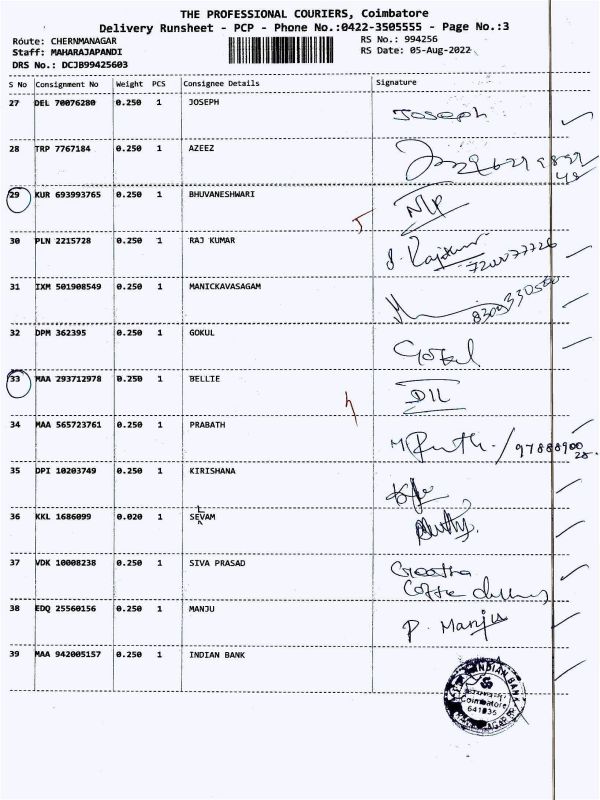 THE PROFESSIONAL COURIERS, Coimbatore
Delivery Runsheet - PCP - Phone No.:0422-3505555 - Page No.:3
Route: CHERNMANAGAR
RS No.: 994256
Staff: MAHARAJAPANDI
RS Date: 05-Aug-2022
DRS No.: DCJB99425603
S No Consignment No Weight PCS Consignee Details Signature
27 DEL 70076280 0.250 1 JOSEPH Joseph
28 TRP 7767184 0.250 1 AZEEZ
29 KUR 693993765 0.250 1 BHUVANESHWARI NIP
30 PLN 2215728 0.250 1 RAJ KUMAR
31 IXM 501908549 0.250 1 MANICKAVASAGAM
32 DPM 362395 0.250 1 GOKUL Gokul
33 MAA 293712978 0.250 1 BELLIE DIL
34 MAA 565723761 0.250 1 PRABATH
35 DPI 10203749 0.250 1 KIRISHANA
36 KKL 1686099 0.020 1 SEVAM
37 VDK 10008238 0.250 1 SIVA PRASAD Geetha
38 EDQ 25560156 0.250 1 MANJU P. Manju
39 MAA 942005157 0.250 1 INDIAN BANK
INDIAN BANK
Coimbatore